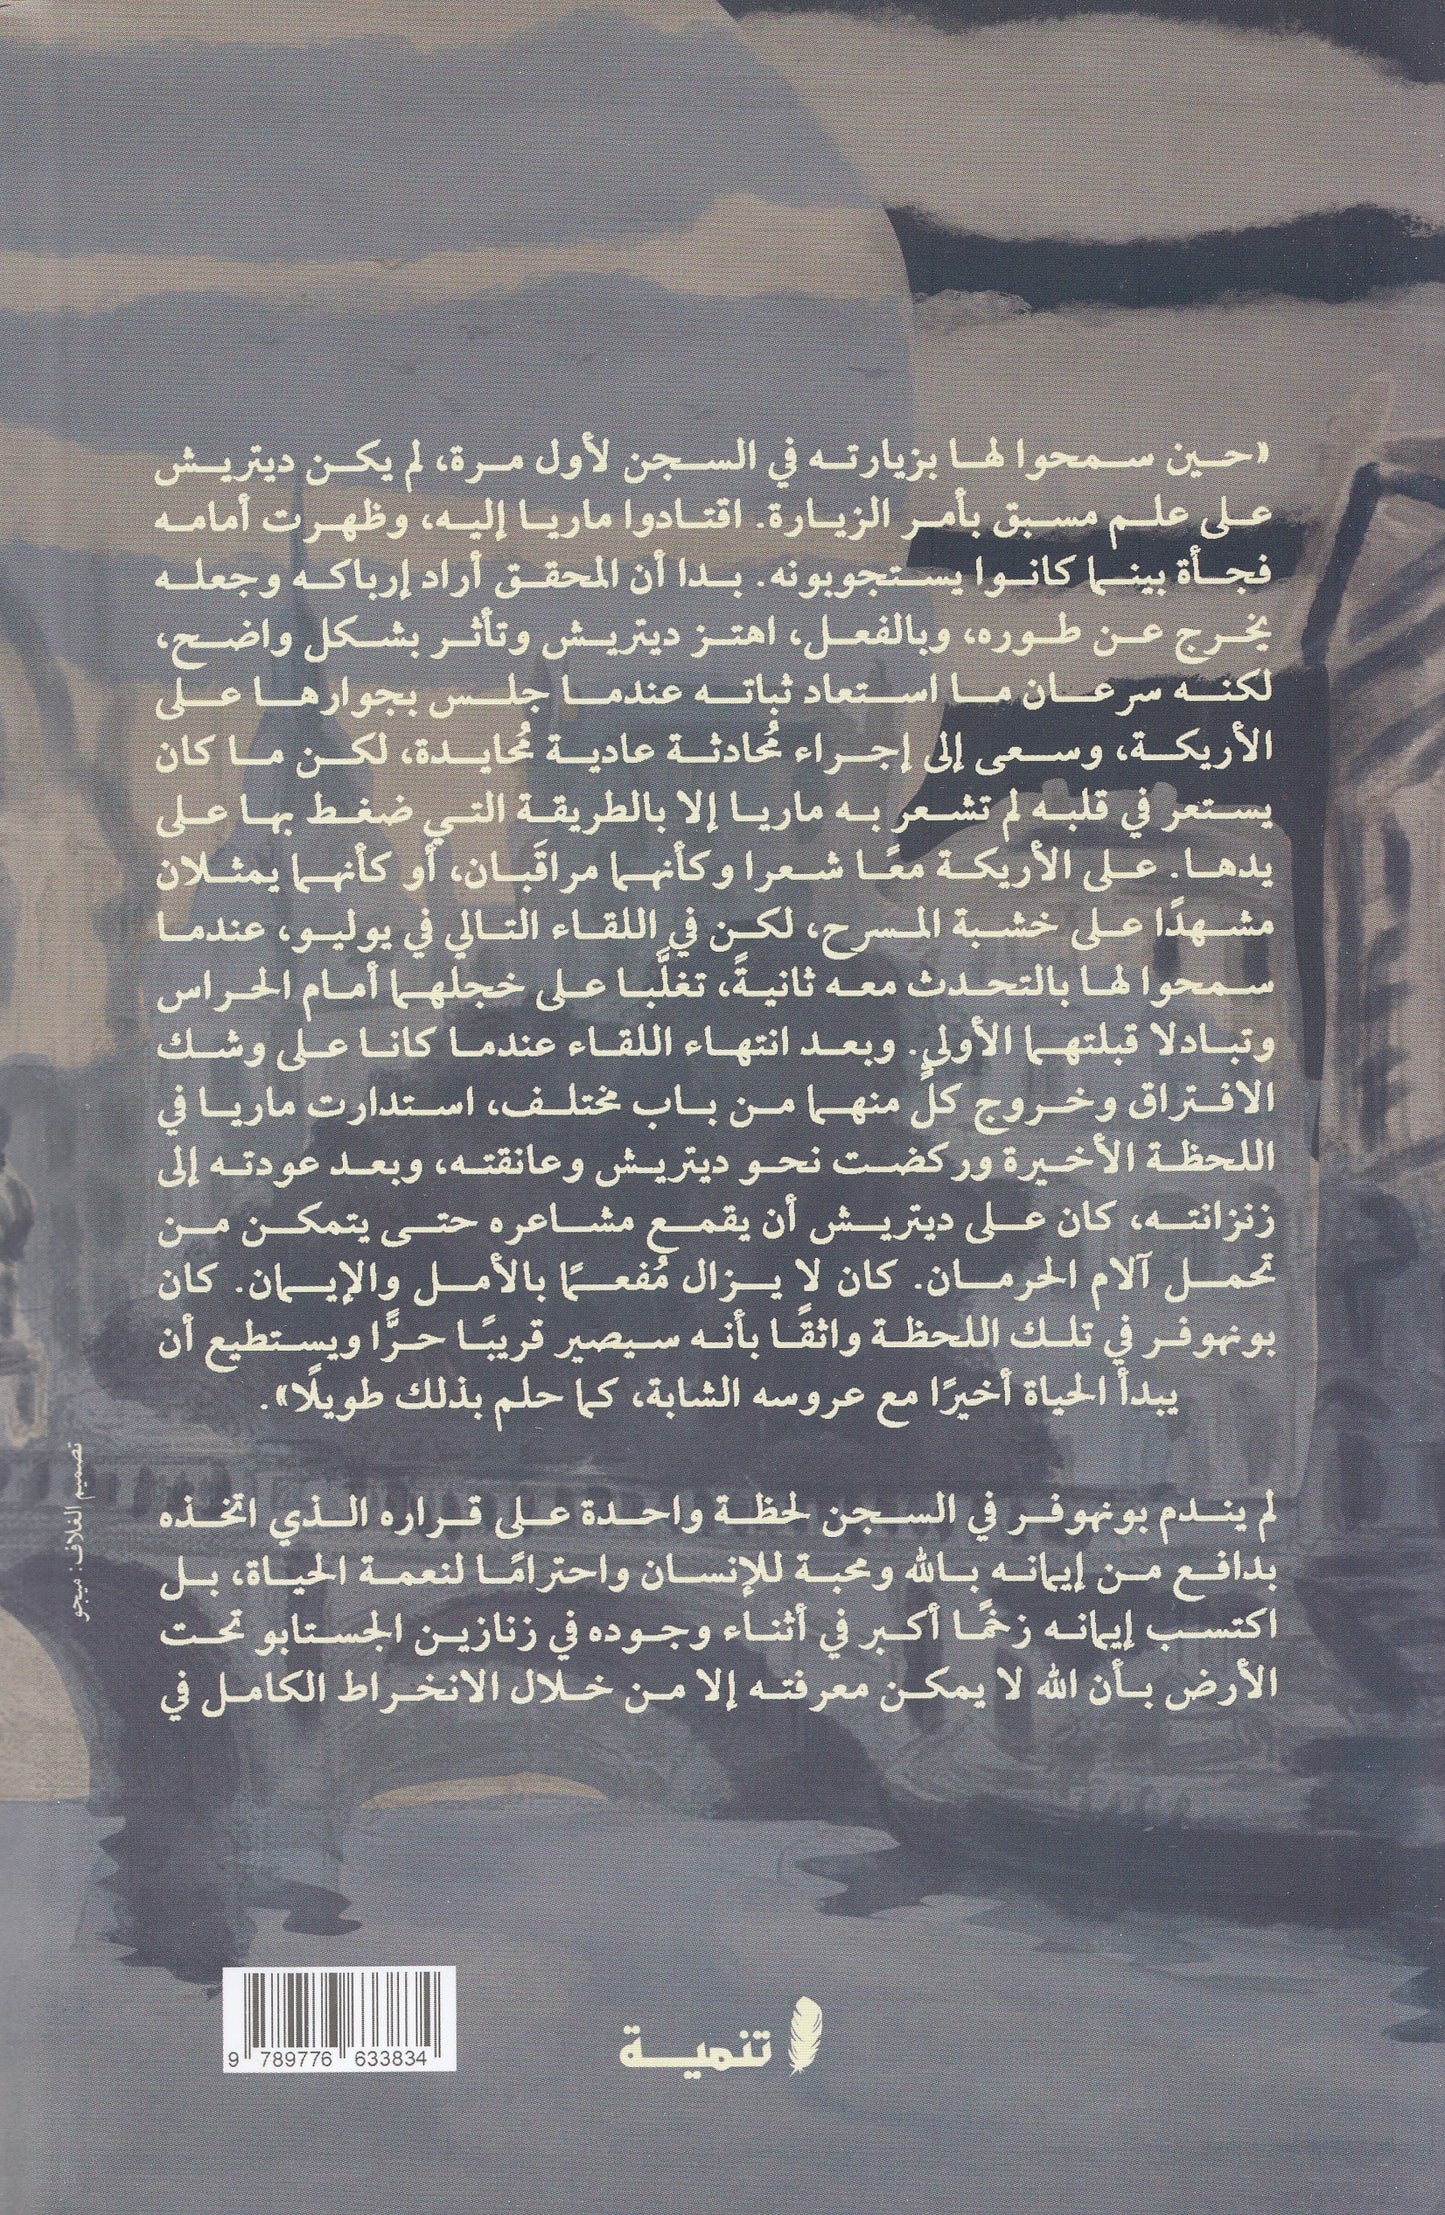 «حين سمحوا لها بزيارته في السجن لأول مرة، لم يكن ديتريش
على علم مسبق بأمر الزيارة. اقتادوا ماريا إليه، وظهرت أمامه
فجأة بينما كانوا يستجوبونه. بدا أن المحقق أراد إرباكه وجعله
يخرج عن طوره، وبالفعل، اهتز ديتريش وتأثر بشكل واضح،
لكنه سرعان ما استعاد ثباته عندما جلس بجوارها على
الأريكة، وسعى إلى إجراء مُحادثة عادية مُحايدة، لكن ما كان
يستعر في قلبه لم تشعر به ماريا إلا بالطريقة التي ضغط بها على
يدها. على الأريكة معًا شعرا وكأنهما مراقَبان، أو كأنهما يمثلان
مشهدًا على خشبة المسرح، لكن في اللقاء التالي في يوليو، عندما
سمحوا لها بالتحدث معه ثانيةً، تغلَّبا على خجلهما أمام الحراس
وتبادلا قبلتهما الأولى. وبعد انتهاء اللقاء عندما كانا على وشك
الافتراق وخروج كلٍ منهما من باب مختلف، استدارت ماريا في
اللحظة الأخيرة وركضت نحو ديتريش وعانقته، وبعد عودته إلى
زنزانته، كان على ديتريش أن يقمع مشاعره حتى يتمكن من
تحمل آلام الحرمان. كان لا يزال مُفعمًا بالأمل والإيمان. كان
بونهوفر في تلك اللحظة واثقًا بأنه سيصير قريبًا حرًّا ويستطيع أن
يبدأ الحياة أخيرًا مع عروسه الشابة، كما حلم بذلك طويلًا».
لم يندم بونهوفر في السجن لحظة واحدة على قراره الذي اتخذه
بدافع من إيمانه بالله ومحبة للإنسان واحترامًا لنعمة الحياة، بل
اكتسب إيمانه زخمًا أكبر في أثناء وجوده في زنازين الجستابو تحت
الأرض بأن الله لا يمكن معرفته إلا من خلال الانخراط الكامل في
تصميم الغلاف: نيجو
9 789776 633834
تنمية